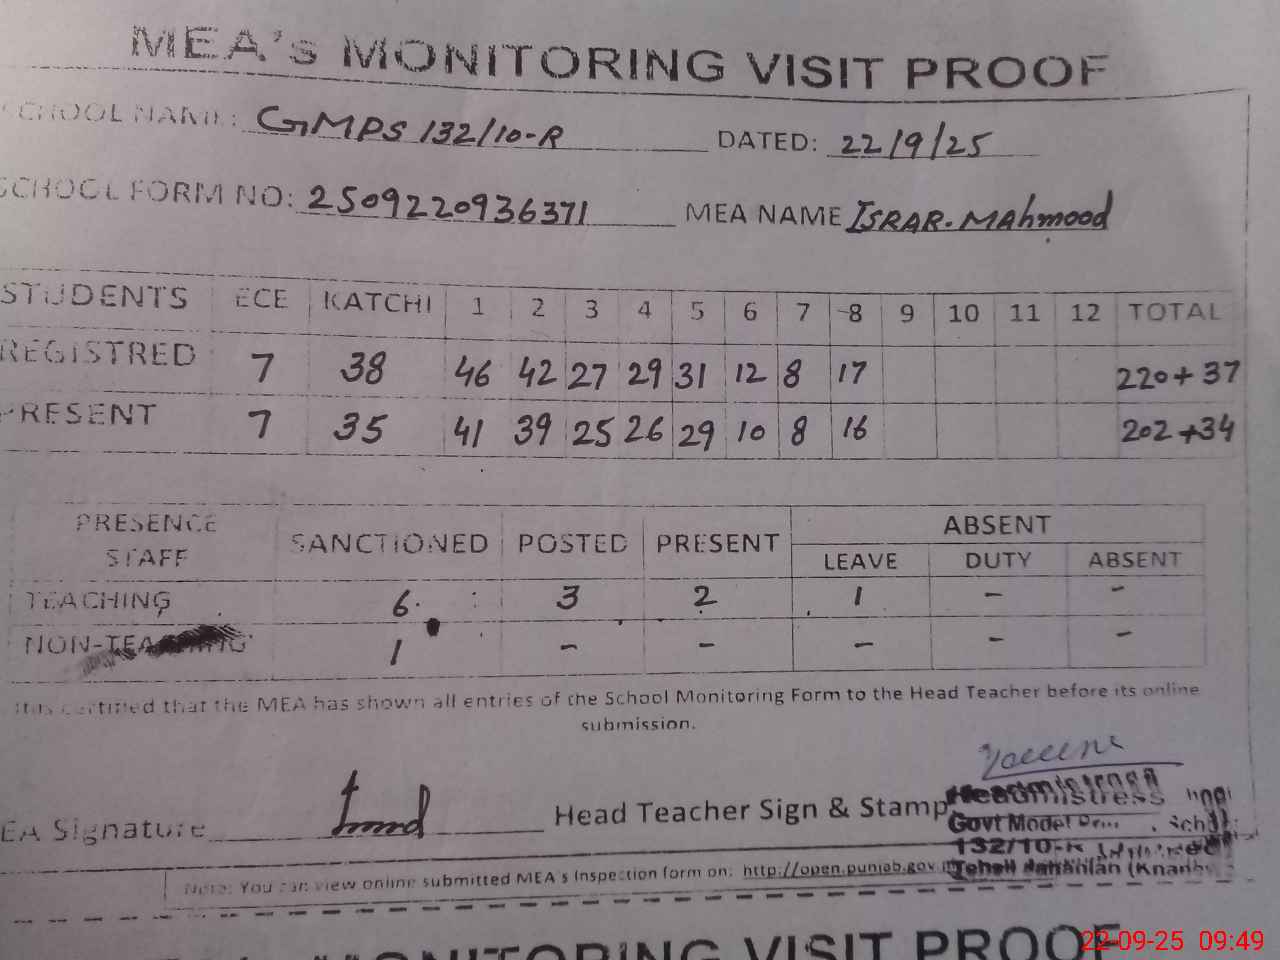 MEA's MONITORING VISIT PROOF
SCHOOL NAME: GMPS 132/10-R DATED: 22/9/25
SCHOOL FORM NO: 2509220936371 MEA NAME ISRAR. MAhmood
STUDENTS ECE KATCHI 1 2 3 4 5 6 7 8 9 10 11 12 TOTAL
REGISTRED 7 38 46 42 27 29 31 12 8 17 220+37
PRESENT 7 35 41 39 25 26 29 10 8 16 202+34
PRESENCE STAFF SANCTIONED POSTED PRESENT ABSENT
LEAVE DUTY ABSENT
TEACHING 6 3 2 1 - -
NON-TEACHING 1 - - - - -
It is certified that the MEA has shown all entries of the School Monitoring Form to the Head Teacher before its online
submission.
EA Signature Head Teacher Sign & Stamp
Headmistress
Govt Model
132/10-R
Tehsil Jahanian
Note: You can view online submitted MEA's Inspection form on: http://open.punjab.gov
MONITORING VISIT PROOF
22-09-25 09:49